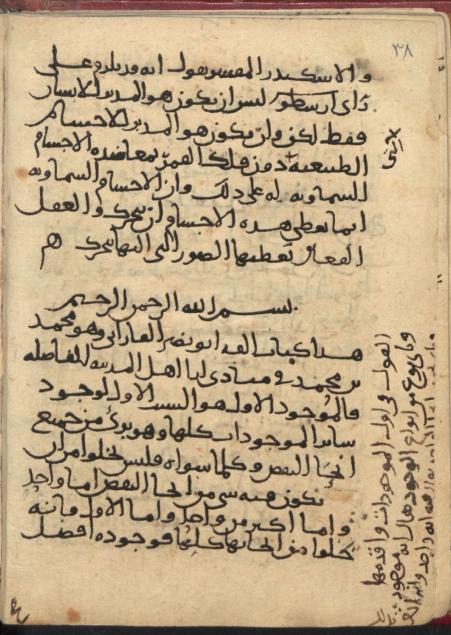 ٣٨
والاسكندر المفسر يقول انه قد يلزم على
رأى ارسطو ليس ان يكون هو المدبر للانسان
فقط لكن وان يكون هو المدبر للاجسام
الطبيعية دون فلك القمر بمعاضدة الاجسام
السماوية له على ذلك وان الاجسام السماوية
انما تعطى هذه الاجسام ان تتحرك والعقل
الفعال يعطيها الصور التى اليها تتحرك
بسم الله الرحمن الرحيم
هذا كتاب الفه ابو نصر الفارابى وهو محمد
بن محمد فى مبادى اراء اهل المدينة الفاضلة
فالموجود الاول هو السبب الاول لوجود
سائر الموجودات كلها وهو برئ من جميع
انحاء النقص وكلما سواه فليس يخلوا من ان
يكون فيه شى من انحاء النقص اما واحد
واما اكثر من واحد واما الاول فانه
خلوا من انحائها كلها فوجوده افضل
القول فى اول الموجودات واقدمها
واى نوع من انواع الوجود هو له وانه موجود